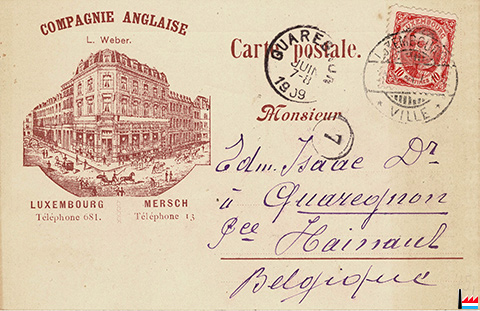 COMPAGNIE ANGLAISE
L. Weber.
LUXEMBOURG
Téléphone 681.
MERSCH
Téléphone 13
Carte postale.
QUAREGNON
JUIN
7-8
1909
LUXEMBOURG
10
VILLE
Monsieur
7
Edm. Isaac Dr
à Quaregnon
Pce Hainaut
Belgique